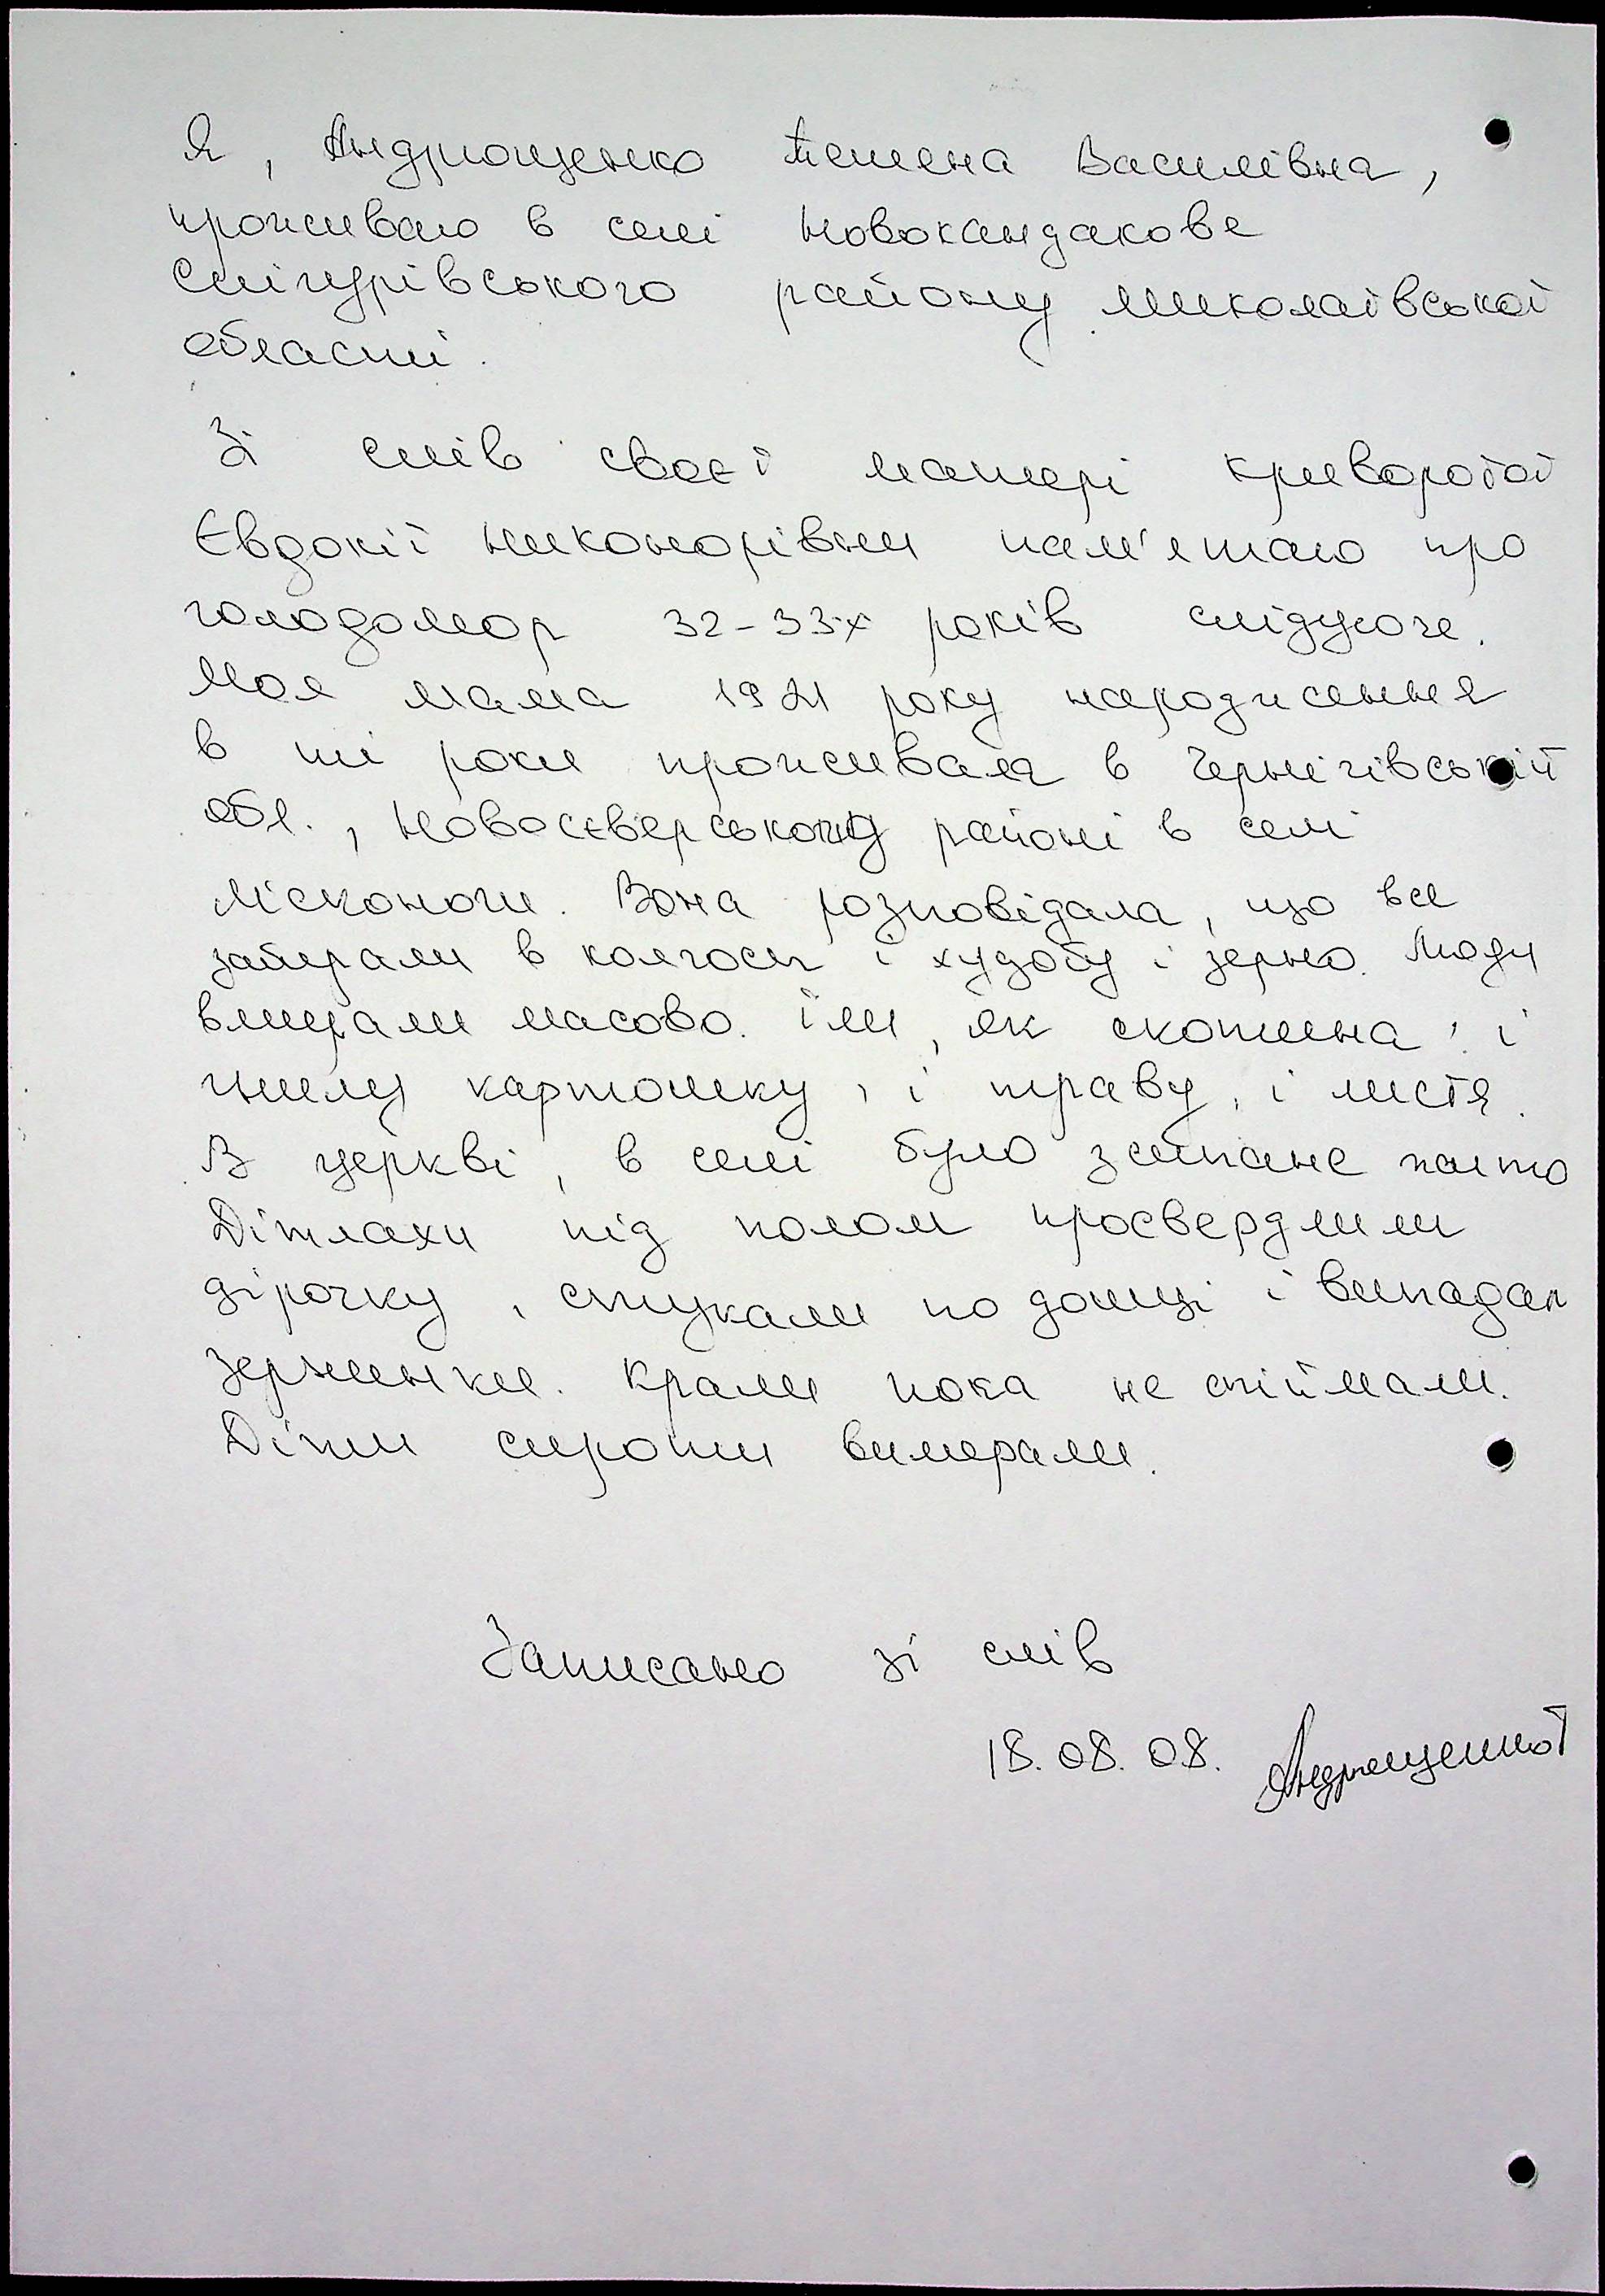 Я, Андрющенко Темена Василівна,
проживаю в селі Новокандакове
Снігурівського району Миколаївської
області.
Зі слів своєї матері Криворотої
Євдокії Никонорівни пам'ятаю про
голодомор 32-33х років слідуюче.
Моя мама 1921 року народження
в ті роки проживала в Чернігівській
обл., Новосєверському районі в селі
Лісконоги. Вона розповідала, що все
забирали в колгосп і худобу і зерно. Люди
вмирали масово. Їли, як скотина, і
гнилу картошку, і траву, і листя.
В церкві, в селі було зсипане жито
Дітлахи під полом просвердлили
дірочку, стукали по дошці і випадал
зернинки. Крали пока не спіймали.
Діти сироти вимерали.
Записано зі слів
18.08.08. Андрющенкої